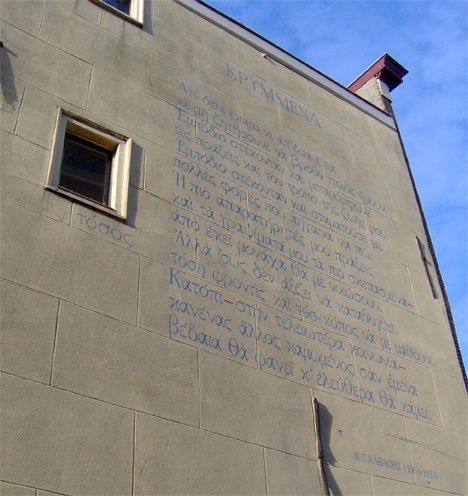 ΚΡΥΜΜΕΝΑ
Απ' όσα έκαμα κι απ' όσα είπα
να μη ζητήσουνε να βρουν ποιος ήμουν.
Εμπόδιο στέκονταν και μεταμόρφωνε
τις πράξεις και τον τρόπο της ζωής μου.
Εμπόδιο στέκονταν και σταματούσε με
πολλές φορές που πήγαινα να πω.
Ή πιό απαρατήρητές μου πράξεις
και τα γραψίματά μου τα πιό σκεπασμένα—
από εκεί μονάχα θα με νιώσουν.
Αλλά ίσως δεν αξίζει να καταβληθεί
τόση φροντίς και τόσος κόπος να με μάθουν.
Κατόπι—στην τελειωτέρα κοινωνία—
κανένας άλλος καμωμένος σαν εμένα
βέβαια θά φανεί κ' ελεύθερα θά κάμει.
ν τόσος
Κ.Π. ΚΑΒΑΦΗΣ (1863-1933)